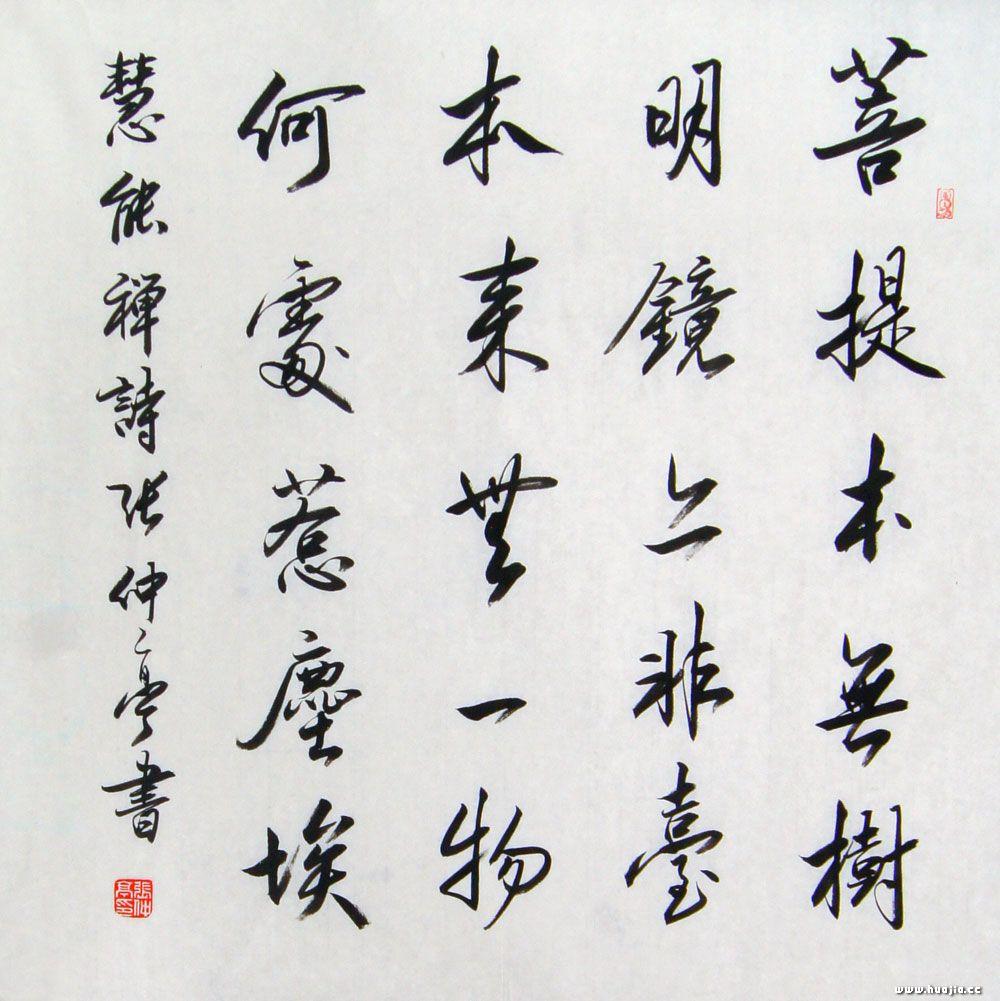 菩提本無樹
明鏡亦非臺
本来無一物
何處惹塵埃
慧能禅詩张仲亭書
張仲亭印
www.huajia.cc